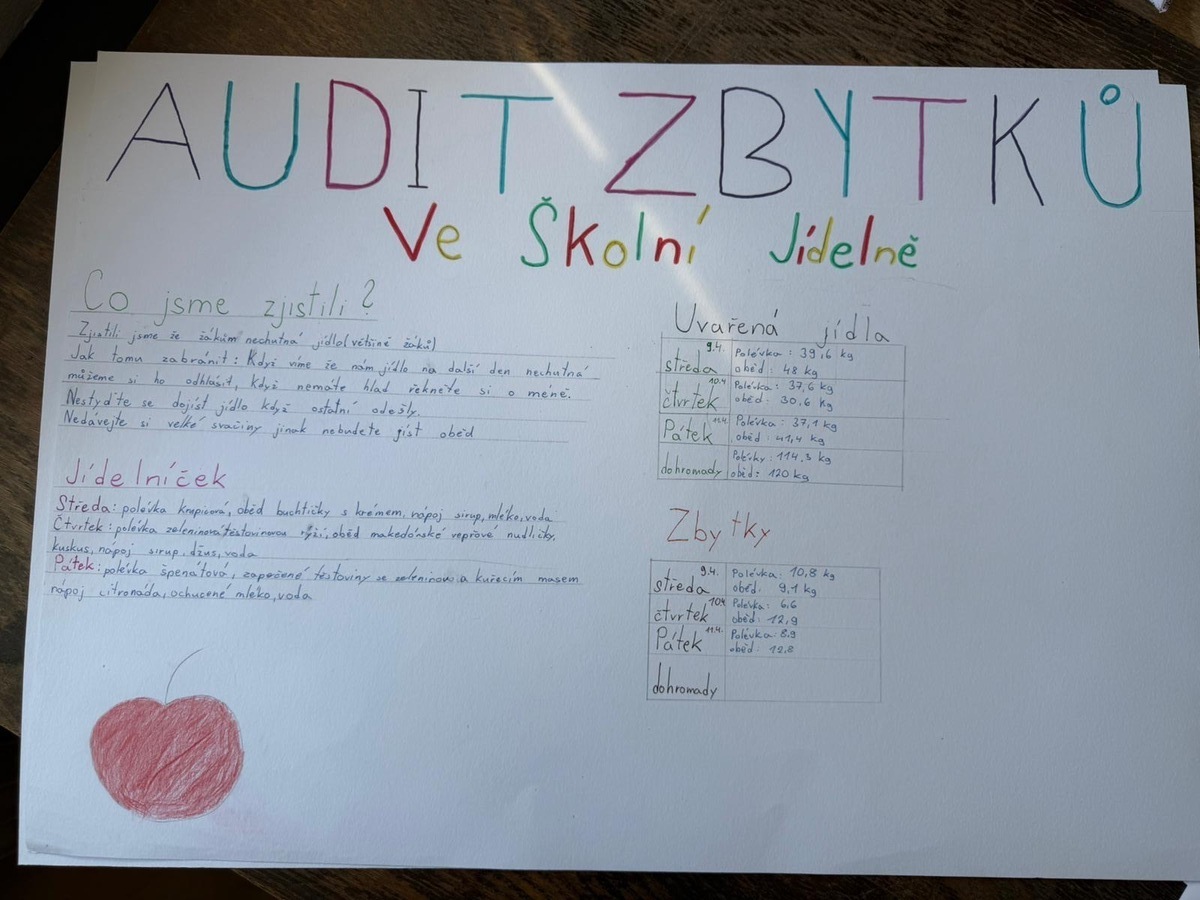 AUDIT ZBYTKŮ
Ve Školní Jídelně
Co jsme zjistili?
Zjistili jsme že žákům nechutná jídlo (většině žáků)
Jak tomu zabránit: Když víme že nám jídlo na další den nechutná
můžeme si ho odhlásit, když nemáte hlad řekněte si o méně.
Nestyďte se dojíst jídlo když ostatní odešly.
Nedávejte si velké svačiny jinak nebudete jíst oběd
Jídelníček
Středa: polévka krupicová, oběd buchtičky s krémem, nápoj sirup, mléko, voda
Čtvrtek: polévka zeleninová těstovinovou rýží, oběd makedónské vepřové nudličky,
kuskus, nápoj sirup, džus, voda
Pátek: polévka špenátová, zapečené těstoviny se zeleninou a kuřecím masem
nápoj citronáda, ochucené mléko, voda
Uvařená jídla
středa 9.4. Polévka: 39,6 kg
oběd: 48 kg
čtvrtek 10.4 Polévka: 37,6 kg
oběd: 30,6 kg
Pátek 11.4. Polévka: 37,1 kg
oběd: 41,4 kg
dohromady Polévky: 114,3 kg
oběd: 120 kg
Zbytky
středa 9.4. Polévka: 10,8 kg
oběd: 9,1 kg
čtvrtek 10.4. Polévka: 6,6
oběd: 12,9
Pátek 11.4. Polévka: 8,9
oběd: 12,8
dohromady